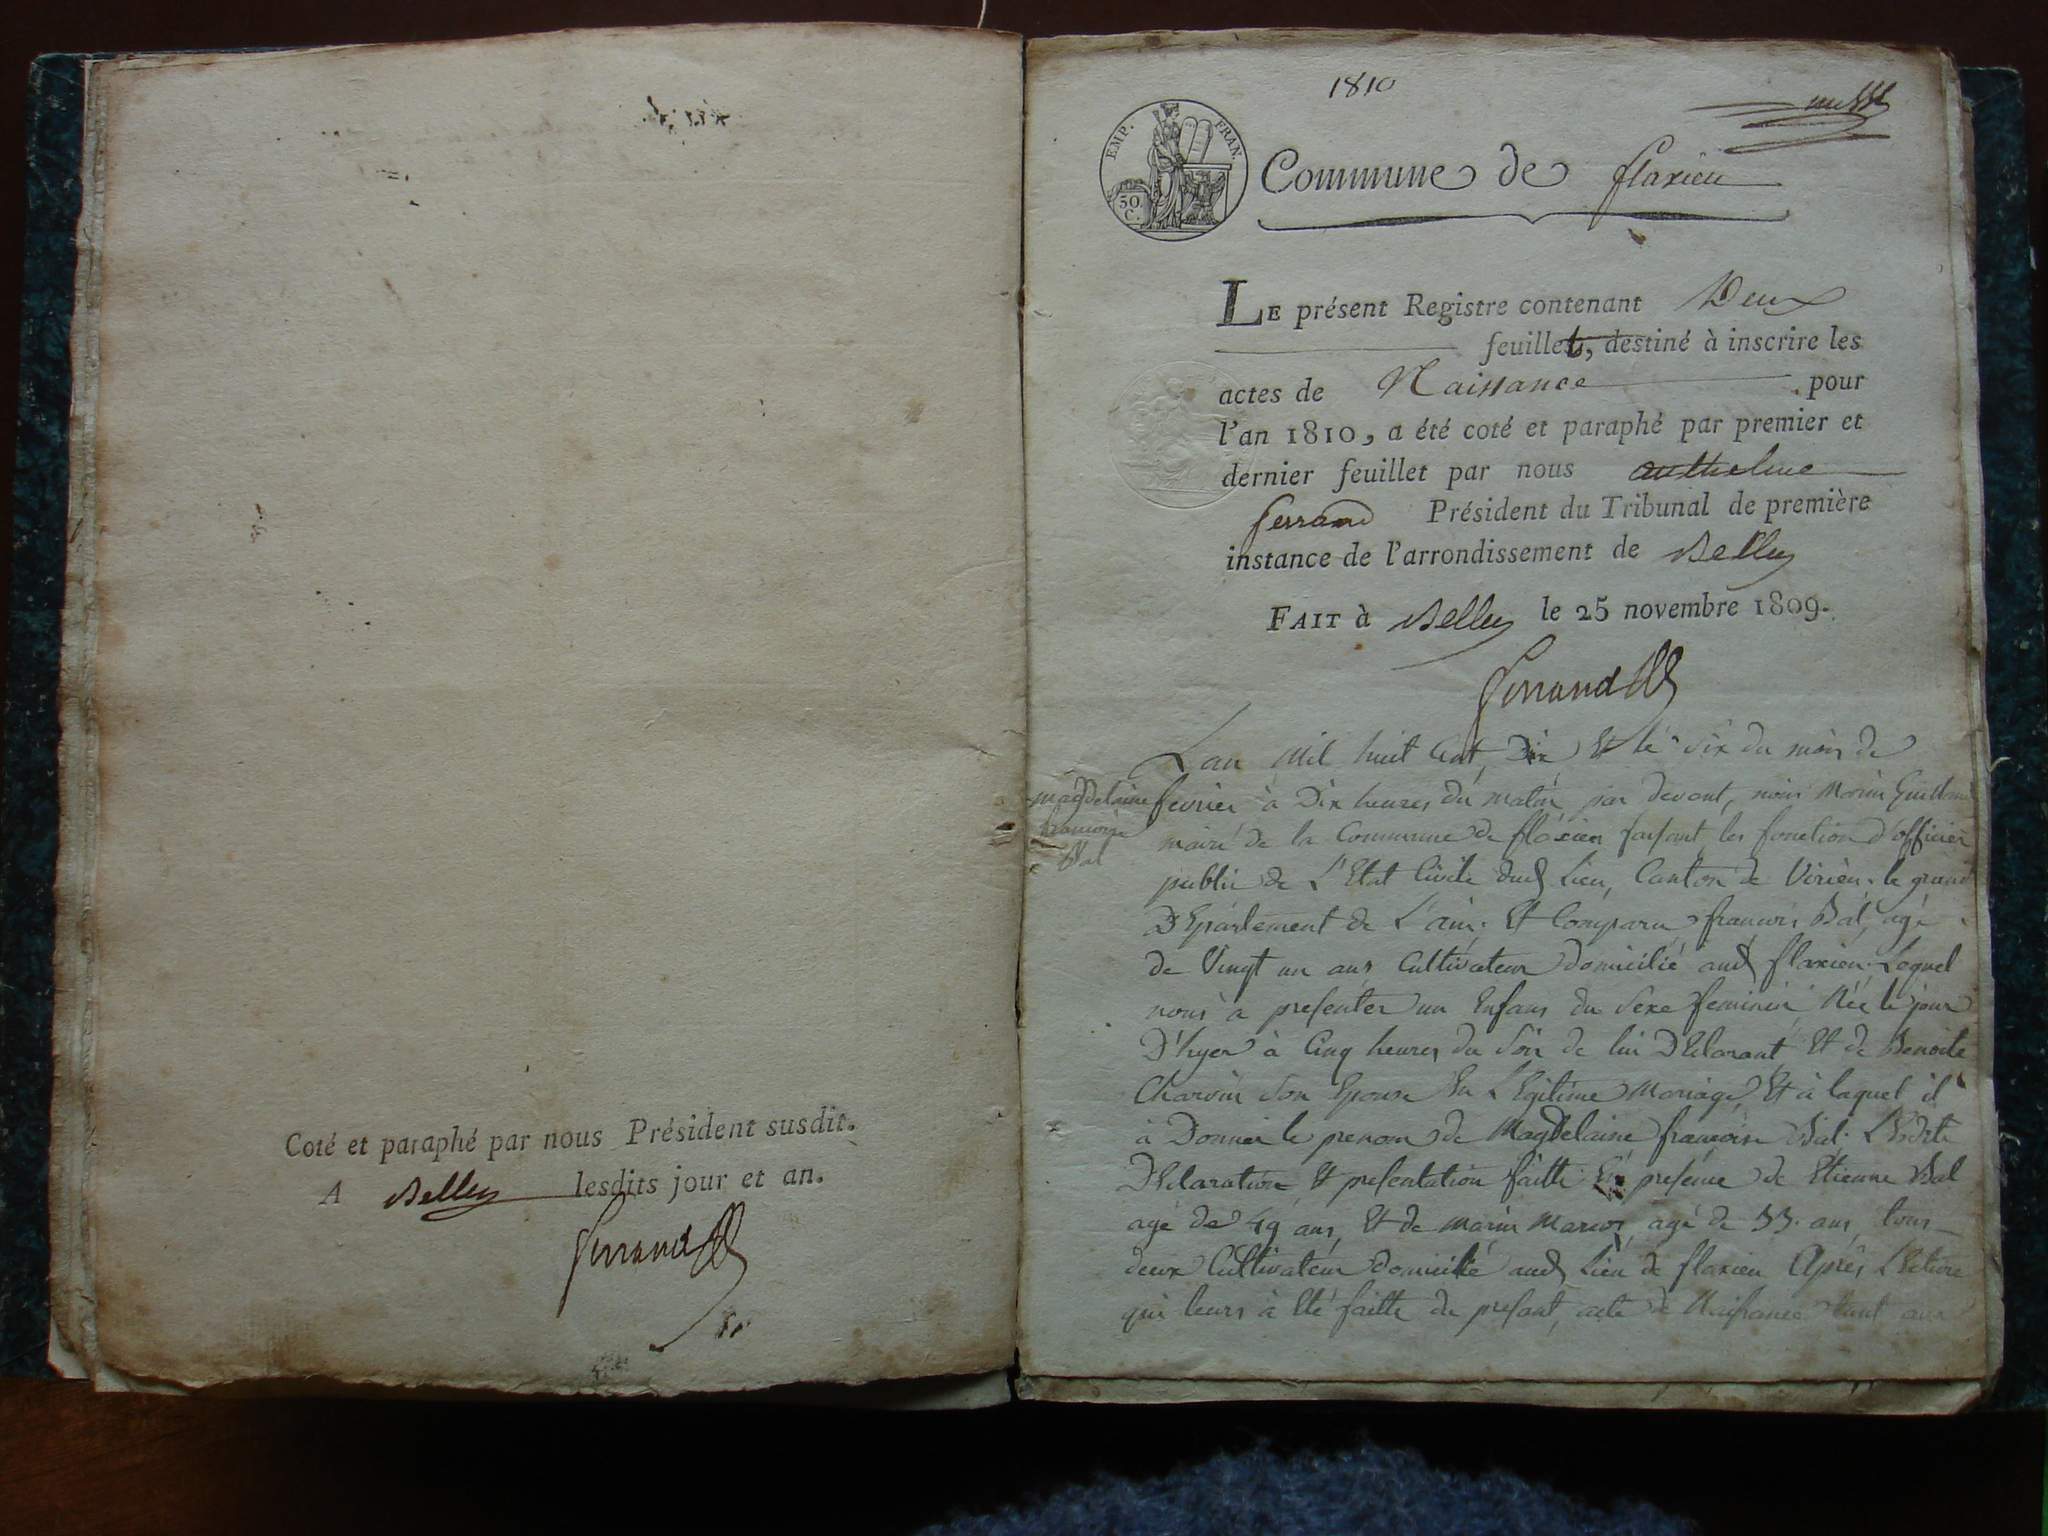 Coté et paraphé par nous Président susdit.
A Belley lesdits jour et an.
Ferrand
1810
EMP. FRAN.
50.
C.
Commune de flaxieu
LE présent Registre contenant Deux
feuillets, destiné à inscrire les
actes de Naissance pour
l'an 1810, a été coté et paraphé par premier et
dernier feuillet par nous anthelme
ferrand Président du Tribunal de première
instance de l'arrondissement de Belley
FAIT à Belley le 25 novembre 1809.
Ferrand
Magdelaine
francoise
Bal
L'an Mil huit Cent Dix Et le Six du mois de
fevrier à Dix heures du matin par devant, nous Marin Guilland
maire de la Commune de flaxieu faisant les fonction d'officier
public de L'Etat Civile dud Lieu, Canton de Virieu le grand
DEpartement de L'ain. Et Comparu francois Bal, agé
de Vingt un ans Cultivateur domicilié aud flaxieu Lequel
nous à presenter un Enfans du Sexe feminin Née le jour
D'hyer à Cinq heures du Soir de lui DEclarant Et de Benoite
Charvin Son Epouse En LEgitime Mariage, Et à laquel il
à Donner le prenom de MagDelaine francoise Bal. L'Sdite
DEclaration Et presentation faitte En presence de Etienne Bal
agé de 49 ans, Et de Marin Marion agé de 33. ans, tous
deux Cultivateur domicilié aud Lieu de flaxieu Après LEcture
qui leurs à Eté faitte du presant, acte de Naissance tant aux